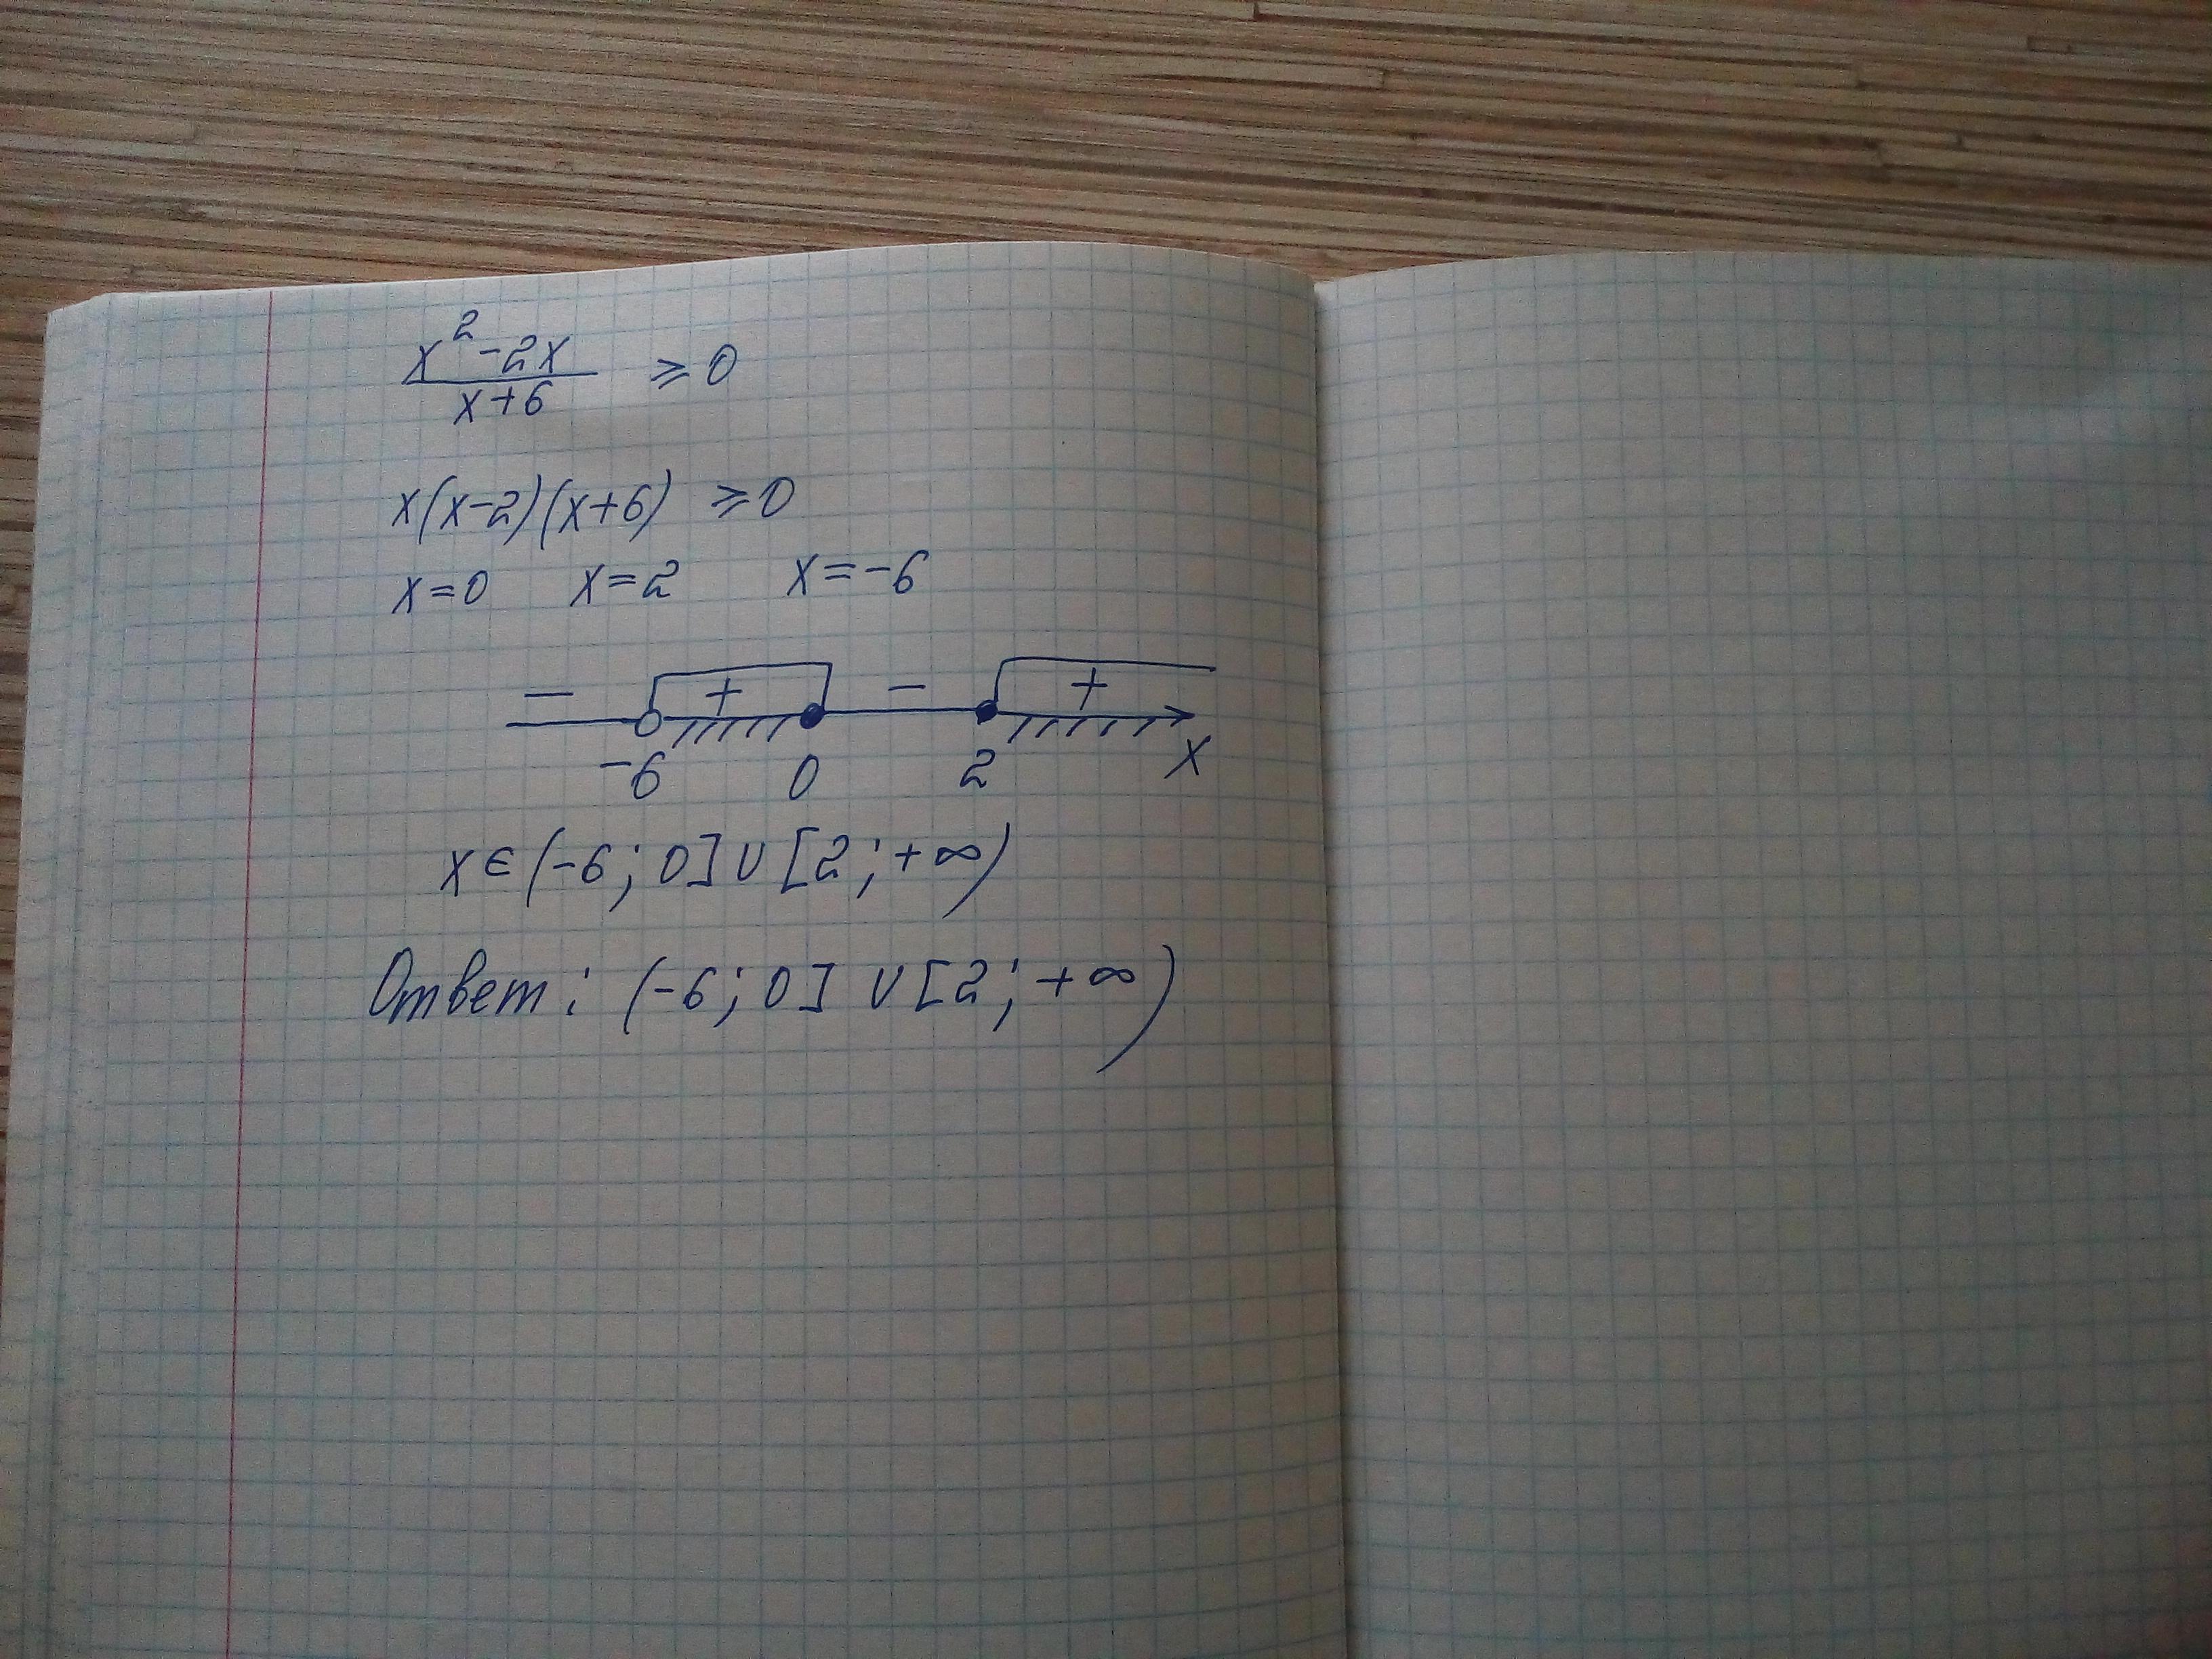 x² - 2x
x + 6
≥ 0
x(x-2)(x+6) ≥ 0
x=0 x=2 x=-6
− + − +
-6 0 2 x
x ∈ (-6; 0] ∪ [2; +∞)
Ответ: (-6; 0] ∪ [2; +∞)